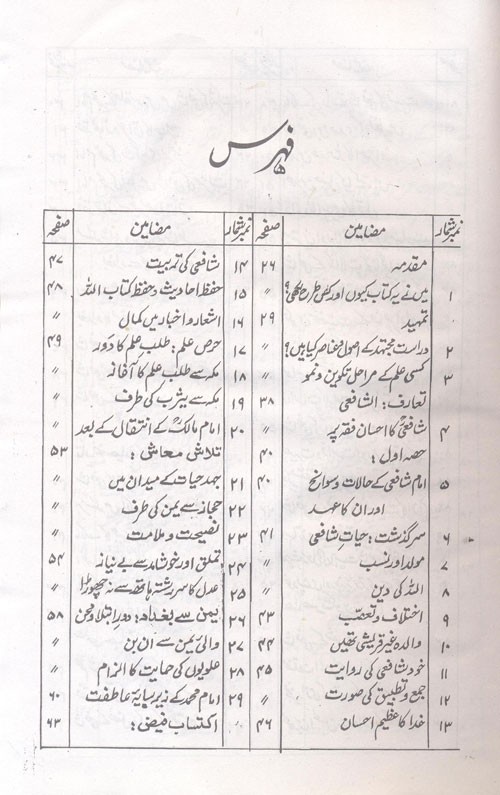 فہرس
نمبر شمار مضامین صفحہ
مقدمہ ۲۶
۱ میں نے یہ کتاب کیوں اور کس طرح لکھی؟ 〃
تمہید ۲۹
۲ دراست مجتہد کے اصول و عناصر کیا ہیں؟ 〃
۳ کسی علم کے مراحل تکوین و نمو 〃
تعارف: الشافعی ۳۸
۴ شافعیؒ کا احسان فقہ پر 〃
حصہ اول: ۴۰
۵ امام شافعی کے حالات و سوانح ۴۰
اور ان کا عہد
۶ سرگزشت: حیاتِ شافعی ۴۱
۷ مولد اور نسب 〃
۸ اللہ کی دین 〃
۹ اختلاف و تعصب ۴۳
۱۰ والدہ غیر قریشی تھیں ۴۴
۱۱ خود شافعی کی روایت ۴۵
۱۲ جمع و تطبیق کی صورت 〃
۱۳ خدا کا عظیم احسان ۴۶
نمبر شمار مضامین صفحہ
۱۴ شافعی کی تربیت ۴۷
۱۵ حفظ احادیث و حفظ کتاب اللہ ۴۸
۱۶ اشعار و اخبار میں کمال 〃
۱۷ حرص علم: طلب علم کا دَور ۴۹
۱۸ مکہ سے طلب علم کا آغاز 〃
۱۹ مکہ سے یثرب کی طرف 〃
۲۰ امام مالکؒ کے انتقال کے بعد 〃
تلاش معاش: ۵۳
۲۱ جہد حیات کے میدان میں 〃
۲۲ حجاز سے یمن کی طرف 〃
۲۳ نصیحت و ملامت 〃
۲۴ تملق اور خوشامد سے بے نیاز ۵۴
۲۵ عدل کا سر رشتہ ہاتھ سے نہ چھوڑا 〃
۲۶ یمن سے بغداد: دور ابتلا و محن ۵۸
۲۷ والیٔ یمن سے ان بن 〃
۲۸ علویوں کی حمایت کا الزام 〃
۲۹ امام محمد کے زیر سایۂ عاطفت ۶۰
اکتساب فیض: ۶۳